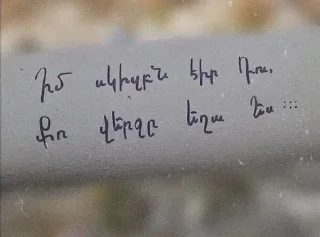 Իմ սկիզբն էիր Դու,
Քո վերջը եղա Ես :::